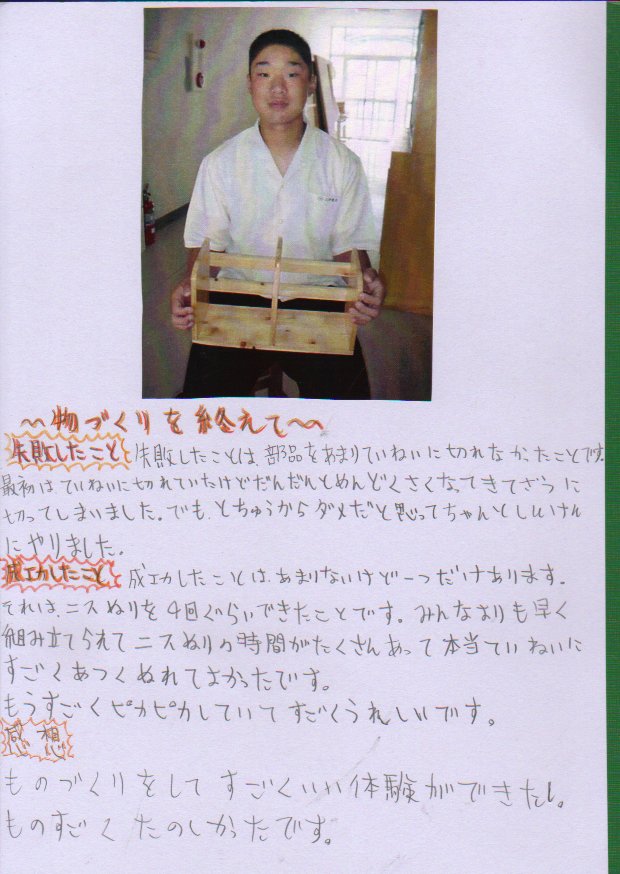 ～物づくりを終えて～
失敗したこと 失敗したことは、部品をあまりていねいに切れなかったことです。
最初は、ていねいに切れていたけどだんだんとめんどくさくなってきてざつに
切ってしまいました。でも、とちゅうからダメだと思ってちゃんとしんけん
にやりました。
成功したこと 成功したことは、あまりないけど一つだけあります。
それは、ニスぬりを4回ぐらいできたことです。みんなよりも早く
組み立てられてニスぬりの時間がたくさんあって本当ていねいに
すごくあつくぬれてよかったです。
もうすごくピカピカしていてすごくうれしいです。
感想
ものづくりをしてすごくいい体験ができたし。
ものすごくたのしかったです。